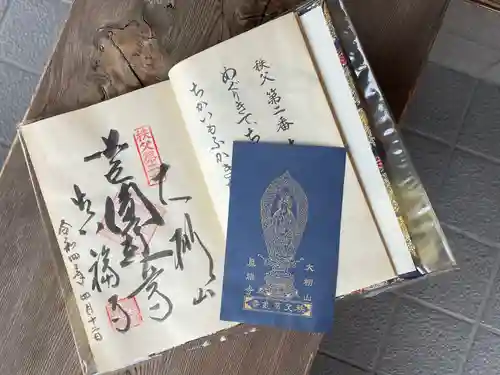 秩父 第二番
めぐりきて、
ちかいもふかき
秩父第二
大棚山
真福寺
令和四年 四月十二日
大棚山
眞福寺
秩父第貳番